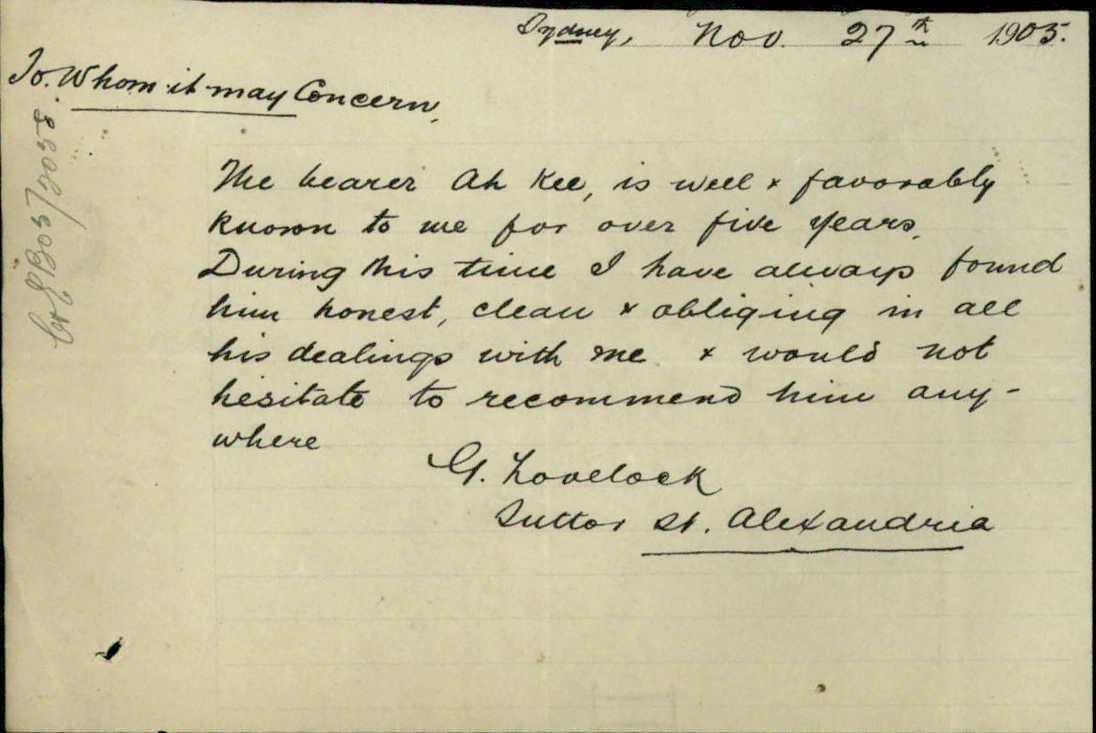 Sydney, Nov. 27th 1905.
To. Whom it may Concern,
The bearer Ah Kee, is well & favorably
known to me for over five years.
During this time I have always found
him honest, clean & obliging in all
his dealings with me & would not
hesitate to recommend him any-
where
G. Lovelock
Suttor St. Alexandria